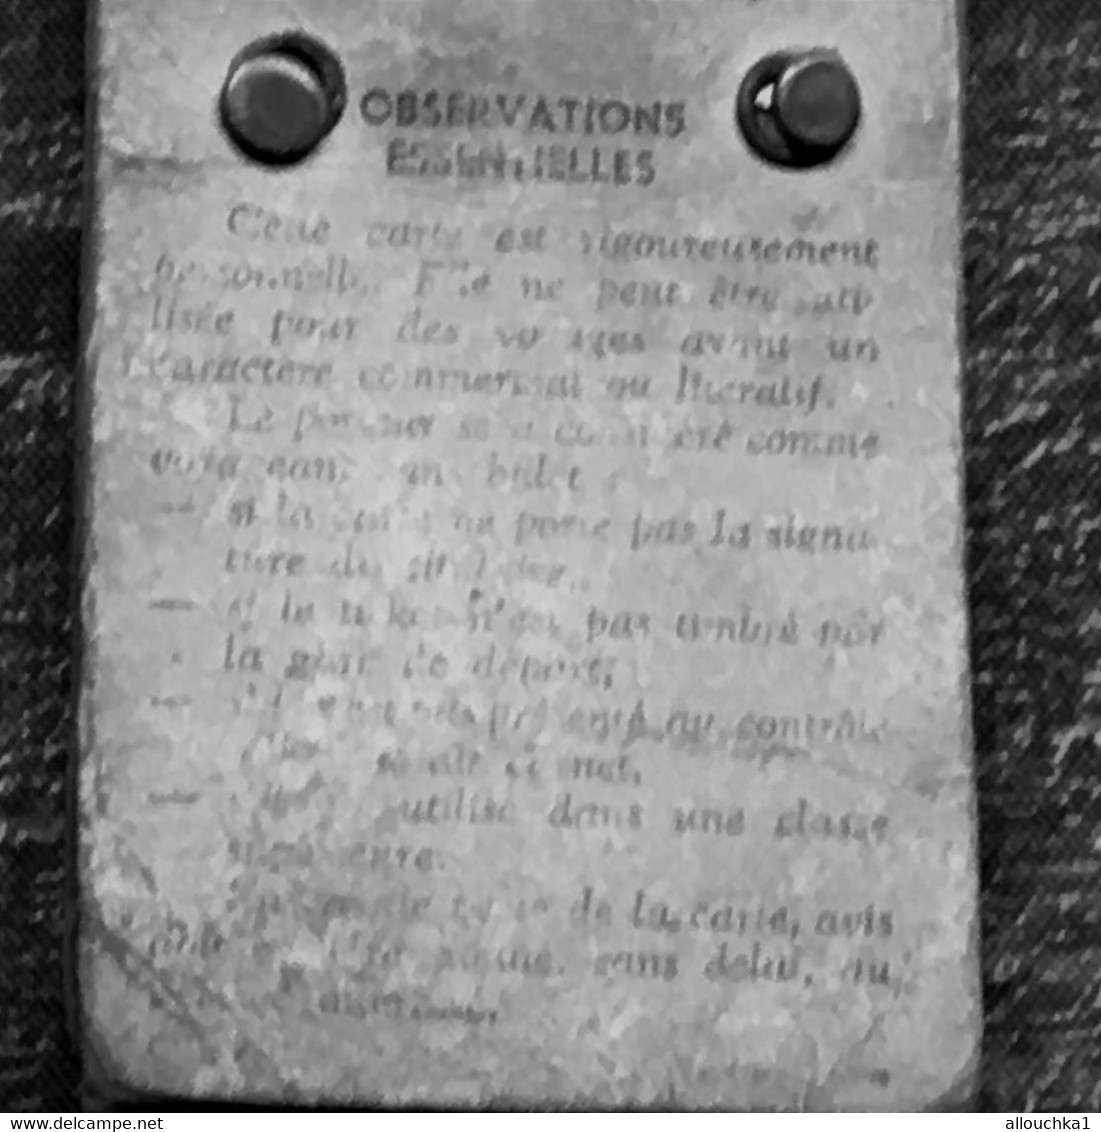 OBSERVATIONS
ESSENTIELLES
Cette carte est rigoureusement
personnelle. Elle ne peut être uti-
lisée pour des voyages ayant un
caractère commercial ou lucratif.
Le porteur sera considéré comme
voyageant sans billet :
— si la carte ne porte pas la signa-
ture du titulaire,
— si le ticket n'est pas timbré par
la gare de départ;
— s'il n'est pas présenté au contrôle
utilisé dans une classe
supérieure.
de la carte, avis
sans délai, au
delcampe.net
allouchka1